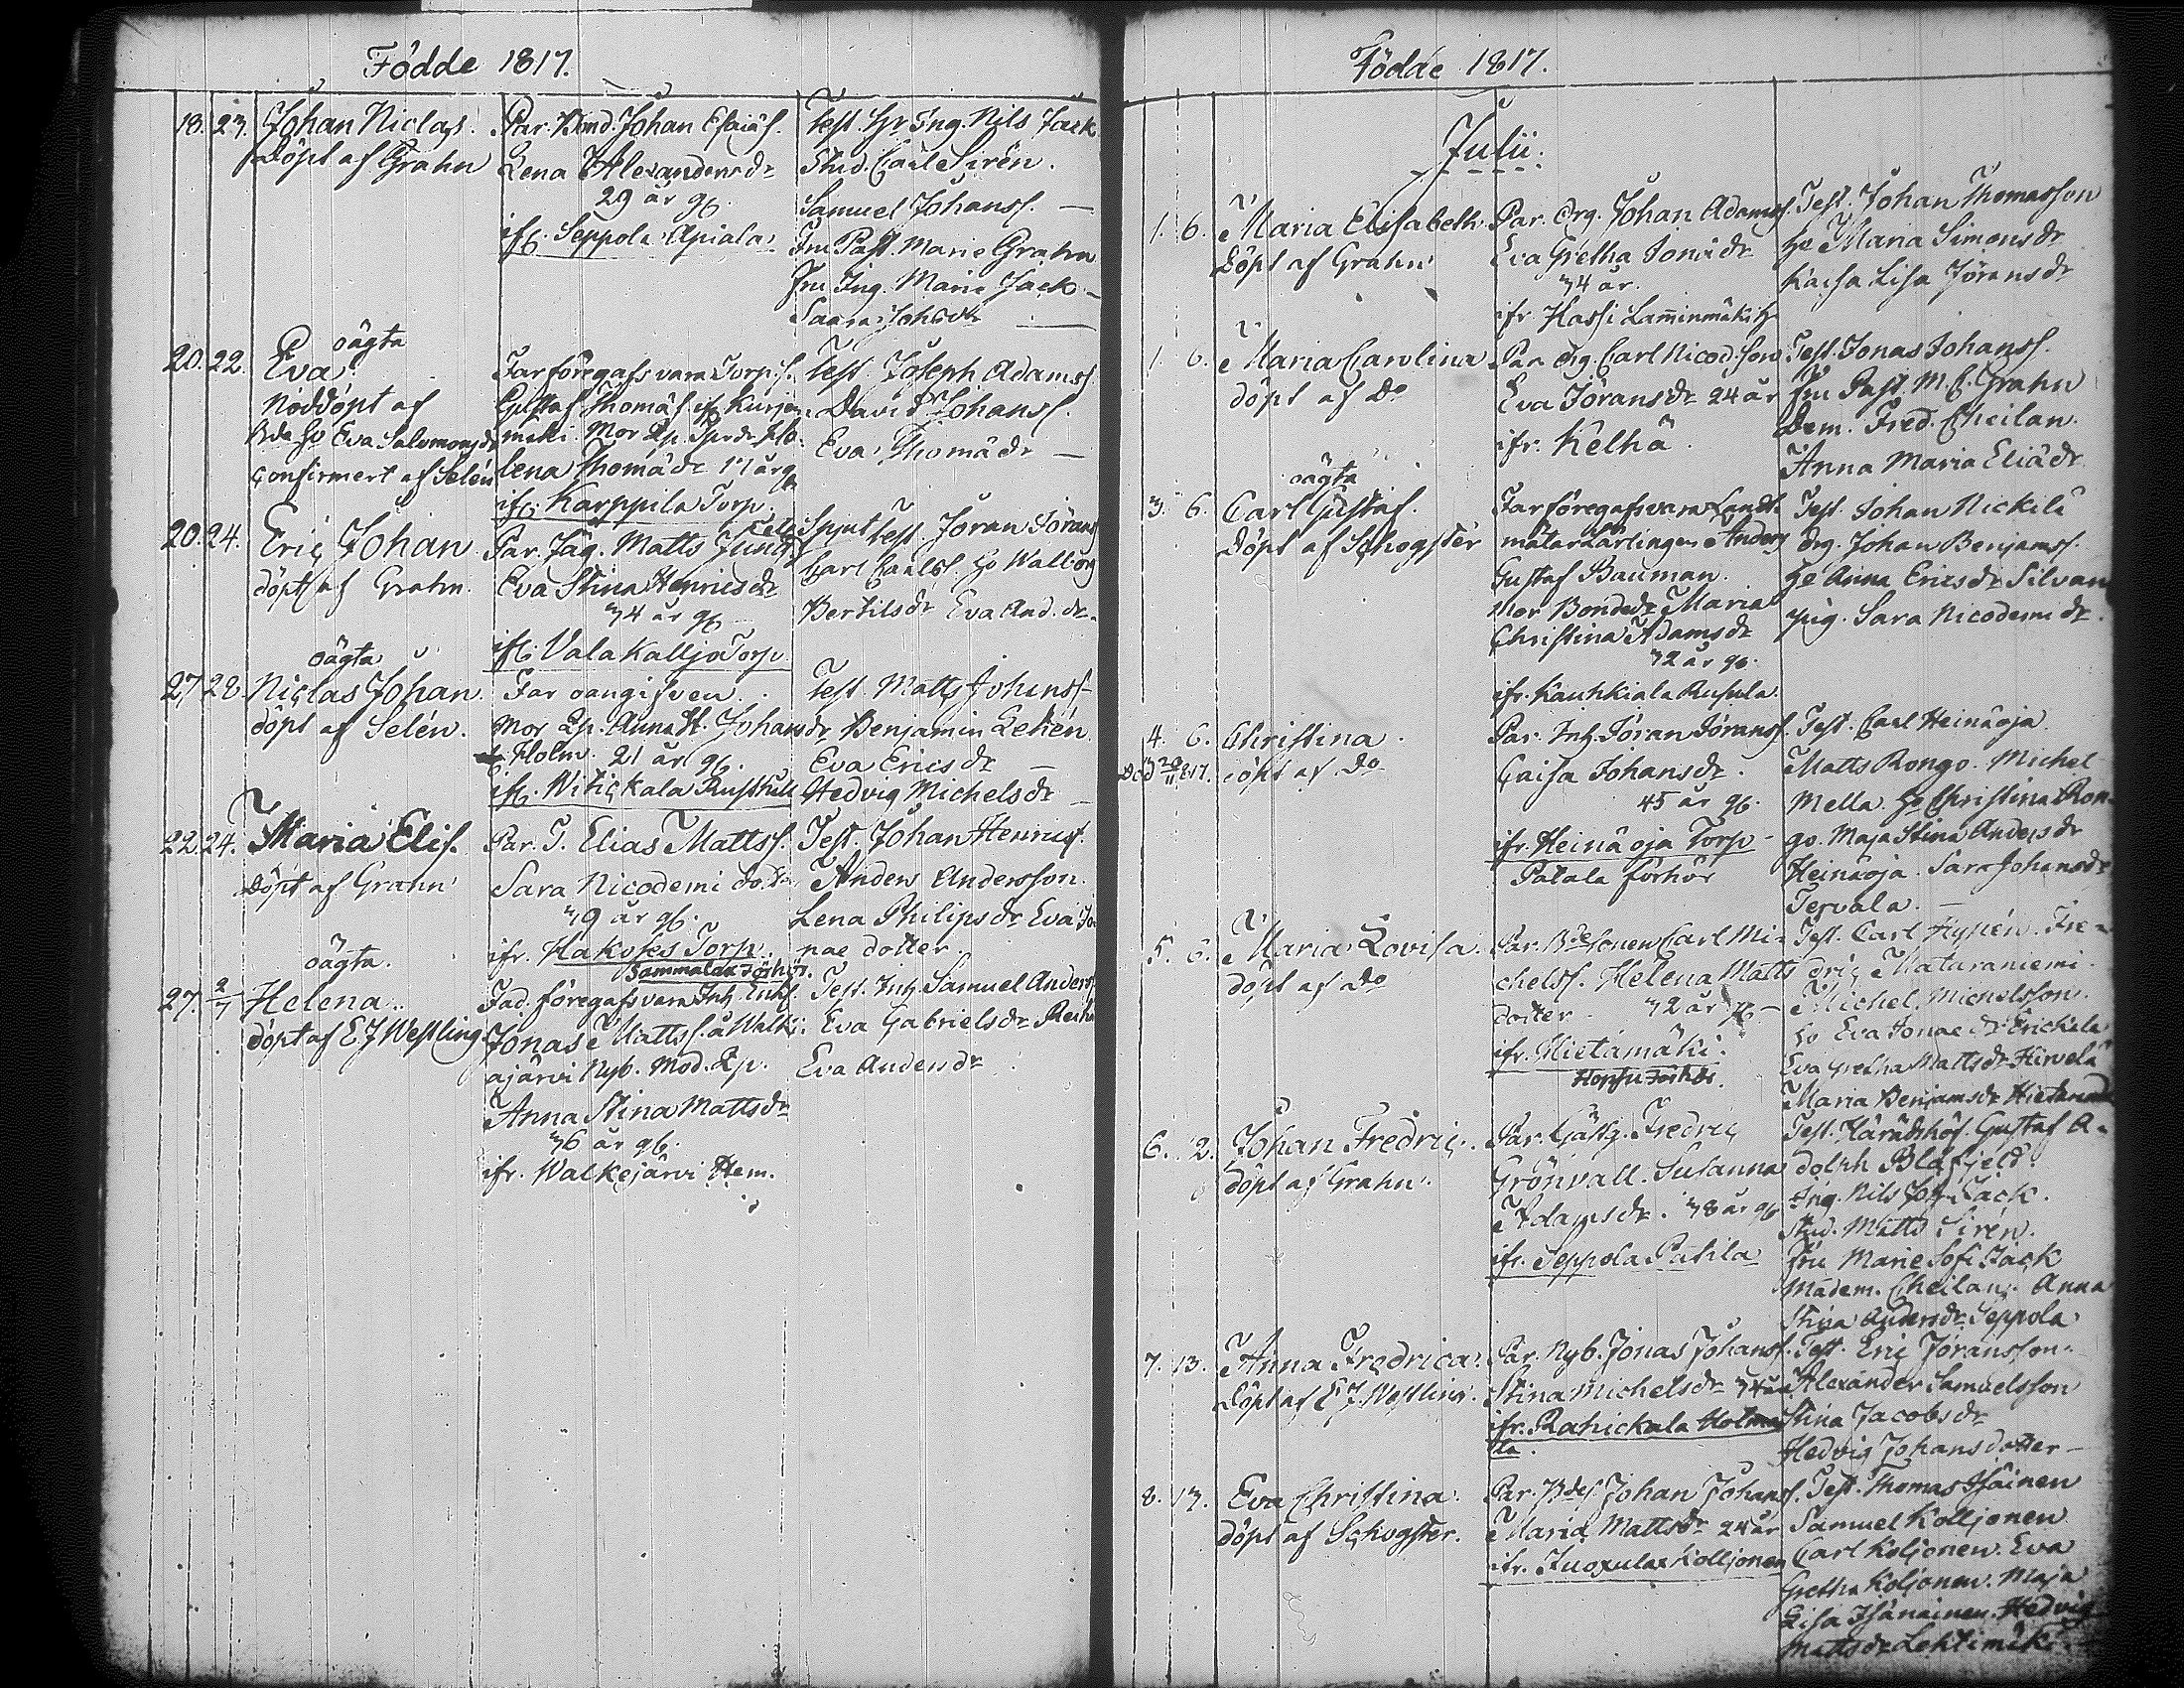 Födde 1817.
18. 23. Johan Niclas.
Döpt af Grahn
Par. Bond. Johan Esaiæs.
Lena Alexandersdr
29 år gl.
ifr. Seppola Apiala
Test. Hr Ing. Nils Jack
Stud. Carl Sirén.
Samuel Johanss. —
Fru Past. Marie Grahn
Fru Ing. Marie Jack —
Saara Johsdr —
oägta
20. 22. Eva.
Nöddöpt af
Bde Ho Eva Salomonsdr
confirmert af Selén
Far föregafs vara Torp.s.
Gustaf Thomæs. ifr. Kurjen-
mäki. Mor Qp. Sprdr He-
lena Thomædr 17 år gl.
ifr. Karppila Torp.
Test. Joseph Adamss.
David Johanss.
Eva Thomædr —
20. 24. Eric Johan
döpt af Grahn.
Par. Jäg. Matts Jung
Eva Stina Henricsdr
34 år gl.
ifr. Vala Kalljo Torp.
Spjut test. Jöran Jörans
Carl Carlss. Ho Walborg
Bertilsdr Eva And.dr.
oägta
27 28. Niclas Johan.
döpt af Selén.
Far oangifven.
Mor Qp. Anna St. Johansdr
Holm. 21 år gl.
ifr. Witickala Rusthåll
Test. Matts Johanss —
Benjamin Lehén
Eva Ericsdr —
Hedvig Michelsdr —
22. 24. Maria Elis.
Döpt af Grahn
Par. T. Elias Mattss.
Sara Nicodemi dotr
39 år gl.
ifr. Hakoses Torp.
Sammalax Förhör.
Test. Johan Henricss.
Anders Andersson.
Lena Philipsdr Eva Jo-
nae dotter.
oägta.
27. 2/7 Helena.
döpt af E J Westling
Fad. föregafs vara Inh. Enkl.
Jonas Mattss. å Walki-
ajärvi Nyb. Mod. Qp.
Anna Stina Mattsdr
36 år gl.
ifr. Walkejärvi Hem.
Test. Inh. Samuel Anderss
Eva Gabrielsdr
Eva Andersdr
Födde 1817.
Julii.
1. 6. Maria Elisabeth
Döpt af Grahn
Par. Drg. Johan Adamss.
Eva Gretha Jonædr
34 år.
ifr. Hassi Lamminmäki
Test. Johan Thomasson
Ho Maria Simonsdr
Kaisa Lisa Jöransdr
1. 6. Maria Carolina
döpt af Do
Par. drg. Carl Nicod.son
Eva Jöransdr 24 år
ifr. Kelhä.
Test. Jonas Johanss.
Fru Past. M. C. Grahn
Dem. Fred. Cheilan.
Anna Maria Eliædr
oägta
3. 6. Carl Gustaf.
Döpt af Schogster
Far föregafs vara Landt-
mätarlärlingen Anders
Gustaf Bauman.
Mor Bondedr Maria
Christina Adamsdr
32 år gl.
ifr. Kauhkiala Rusula
Test. Johan Nickilä
drg. Johan Benjamss.
Ho Anna Ericsdr Silvan
pig. Sara Nicodemi dr.
4. 6. Christina.
Död 20/11 1817. döpt af Do
Par. Inh. Jöran Jöranss.
Caisa Johansdr.
45 år gl.
ifr. Heinäoja Torp —
Patala förhör
Test. Carl Heinäoja
Matts Rongo. Michel
Mella. Ho Christina Ron-
go. Maja Stina Andersdr
Heinäoja. Sara Johansdr
Tervala. —
5. 6. Maria Lovisa.
döpt af Do
Par. Bdesonen Carl Mi-
chelss. Helena Matts
dotter. 32 år gl. —
ifr. Hietamäki.
Hopsu Förhör.
Test. Carl Hypén. Fre-
dric Mataraniemi
Michel Michelsson.
Ho Eva Jonae dr Erickila
Eva Gretha Mattsdr Hirvelä
Maria Benjamsdr
6. 12. Johan Fredric.
döpt af Grahn.
Par. Gästg. Fredric
Grönvall. Susanna
Adamsdr. 38 år gl
ifr. Seppola Patila
Test. Häradshöf. Gustaf A-
dolph Blåfjeld.
Ing. Nils Joh. Jack.
Stud. Matts Sirén.
Fru Marie Sofi Jack
Madem. Cheilan. Anna
Stina Andersdr Seppola
7. 13. Anna Fredrica.
Döpt af E J. Westling.
Par. Nyb. Jonas Johanss.
Stina Michelsdr 34 år
ifr. Rahickala Holma
la.
Test. Eric Jöransson.
Alexander Samuelsson
Stina Jacobsdr
Hedvig Johansdotter —
8. 13. Eva Christina.
döpt af Schogster.
Par. Bdes. Johan Johanss.
Maria Mattsdr 24 år
ifr. Juoxula Kolljonen
Test. Thomas Isäinen
Samuel Kolljonen
Carl Koljonen. Eva
Gretha Koljonen. Maja
Lisa Isänainen. Hedvig
Mattsdr Lehtimäki